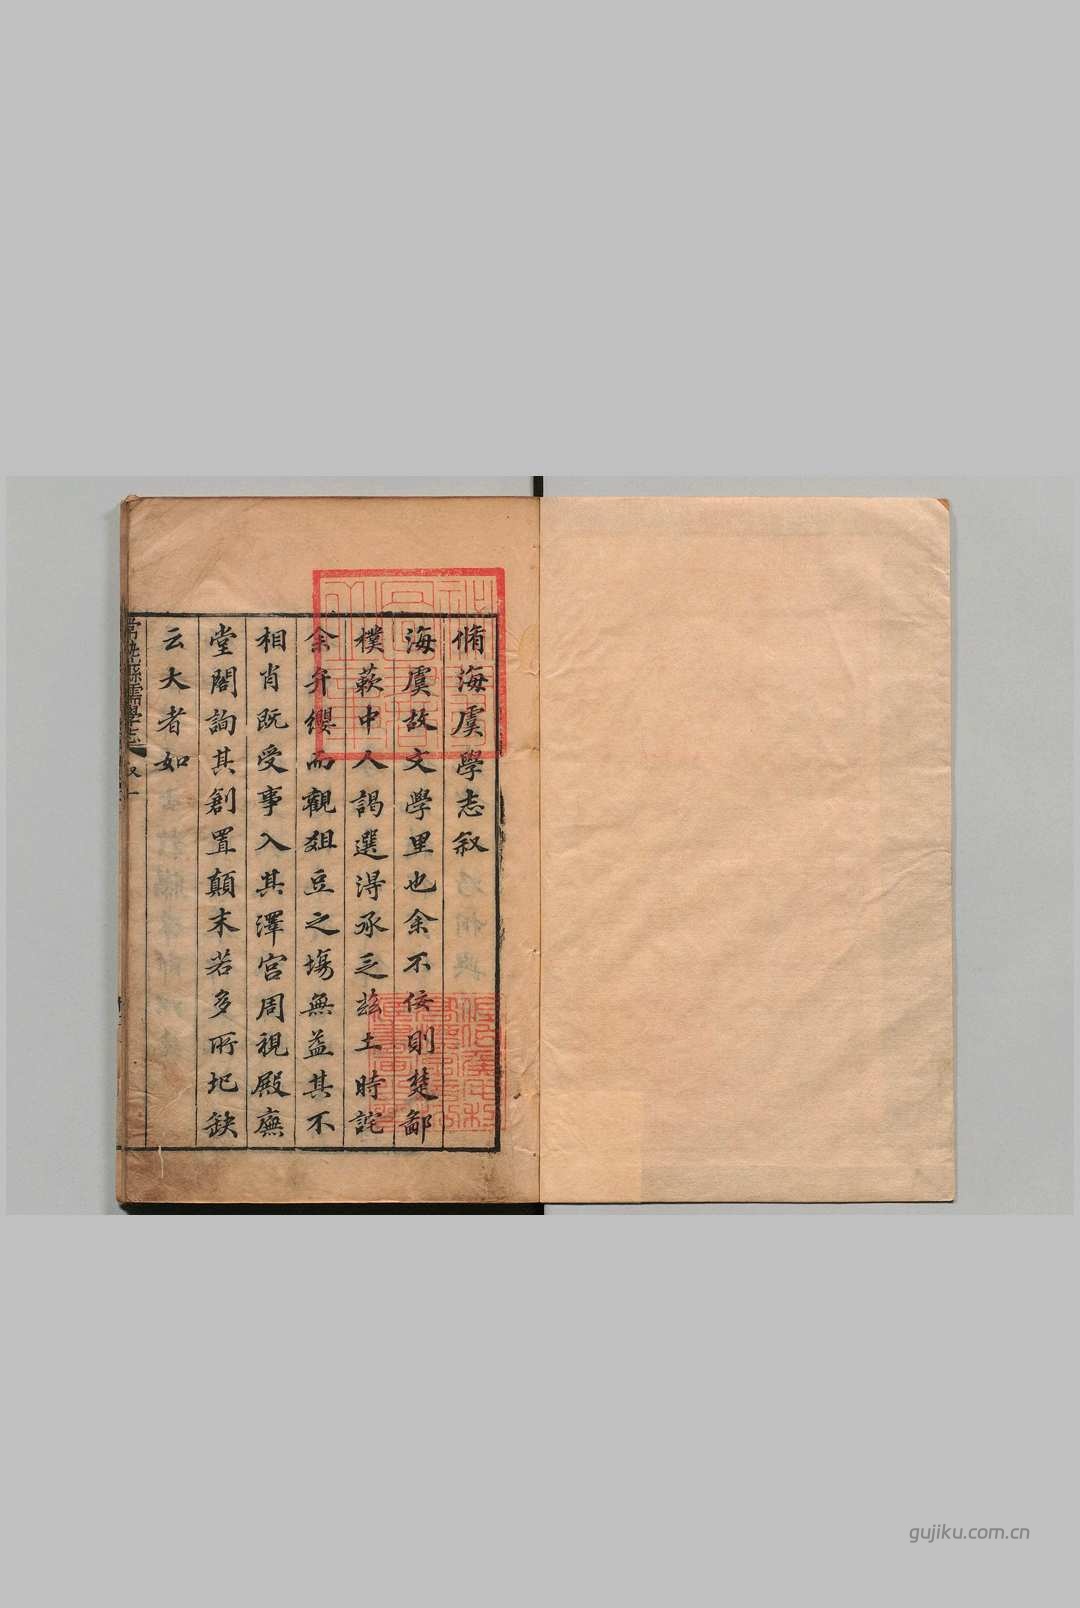 脩海虞學志叙
海虞故文學里也余不佞則楚鄙
樸蔌中人謁選得承乏玆土時詫
余弁纓而觀俎豆之塲無益其不
相肖既受事入其澤宮周視殿廡
堂閣詢其創置顛末若多所圮缺
云大者如
常熟縣儒學志 叙 一
gujiku.com.cn